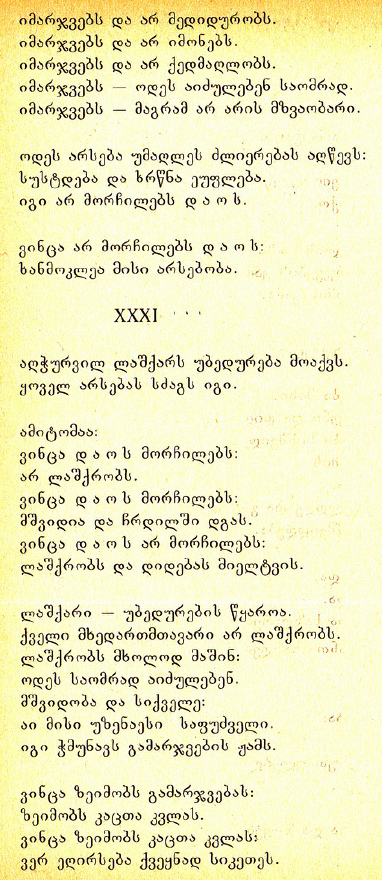 იმარჯვებს და არ მედიდურობს.
იმარჯვებს და არ იმონებს.
იმარჯვებს და არ ქედმაღლობს.
იმარჯვებს — ოდეს აიძულებენ საომრად.
იმარჯვებს — მაგრამ არ არის მზვაობარი.
ოდეს არსება უმაღლეს ძლიერებას აღწევს:
სუსტდება და ხრწნა ეუფლება.
იგი არ მორჩილებს დ ა ო ს.
ვინცა არ მორჩილებს დ ა ო ს:
ხანმოკლეა მისი არსებობა.
XXXI
აღჭურვილ ლაშქარს უბედურება მოაქვს.
ყოველ არსებას სძაგს იგი.
ამიტომაა:
ვინცა დ ა ო ს მორჩილებს:
არ ლაშქრობს.
ვინცა დ ა ო ს მორჩილებს:
მშვიდია და ჩრდილში დგას.
ვინცა დ ა ო ს არ მორჩილებს:
ლაშქრობს და დიდებას მიელტვის.
ლაშქარი — უბედურების წყაროა.
ქველი მხედართმთავარი არ ლაშქრობს.
ლაშქრობს მხოლოდ მაშინ:
ოდეს საომრად აიძულებენ.
მშვიდობა და სიქველე:
აი მისი უზენაესი საფუძველი.
იგი ჭმუნავს გამარჯვების ჟამს.
ვინცა ზეიმობს გამარჯვებას:
ზეიმობს კაცთა კვლას.
ვინცა ზეიმობს კაცთა კვლას:
ვერ ეღირსება ქვეყნად სიკეთეს.